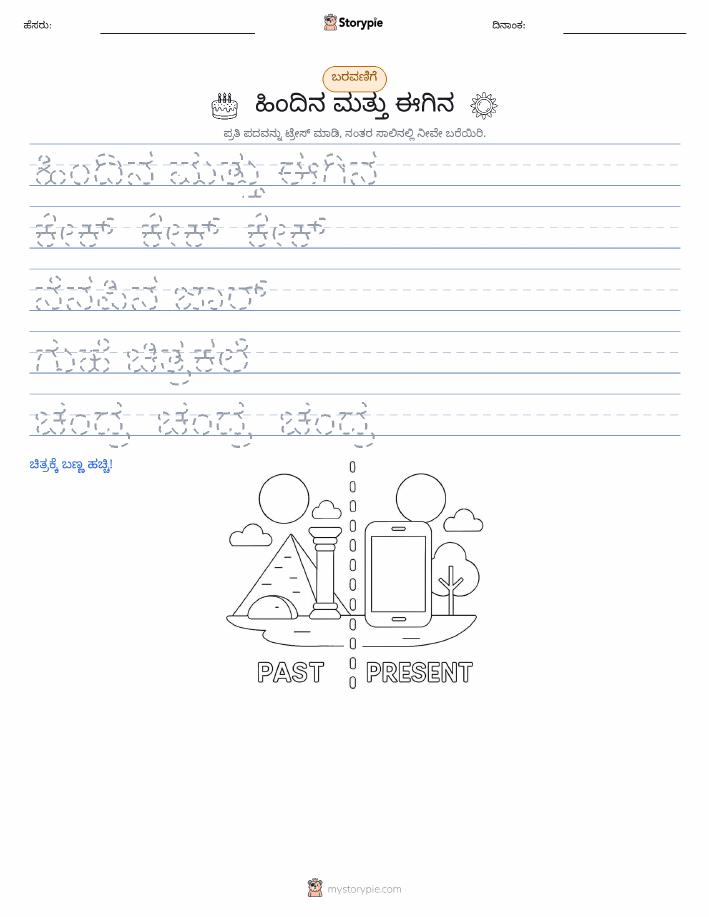 ಹೆಸರು:
Storypie
ದಿನಾಂಕ:
ಬರವಣಿಗೆ
ಹಿಂದಿನ ಮತ್ತು ಈಗಿನ
ಪ್ರತಿ ಪದವನ್ನು ಟ್ರೇಸ್ ಮಾಡಿ, ನಂತರ ಸಾಲಿನಲ್ಲಿ ನೀವೇ ಬರೆಯಿರಿ.
ಹಿಂದಿನ ಮತ್ತು ಈಗಿನ
ಕೇಕ್ ಕೇಕ್ ಕೇಕ್
ನೆನಪಿನ ಜಾರ್
ಗುಹೆ ಚಿತ್ರಕಲೆ
ಚಂದ್ರ ಚಂದ್ರ ಚಂದ್ರ
ಚಿತ್ರಕ್ಕೆ ಬಣ್ಣ ಹಚ್ಚಿ!
PAST PRESENT
mystorypie.com